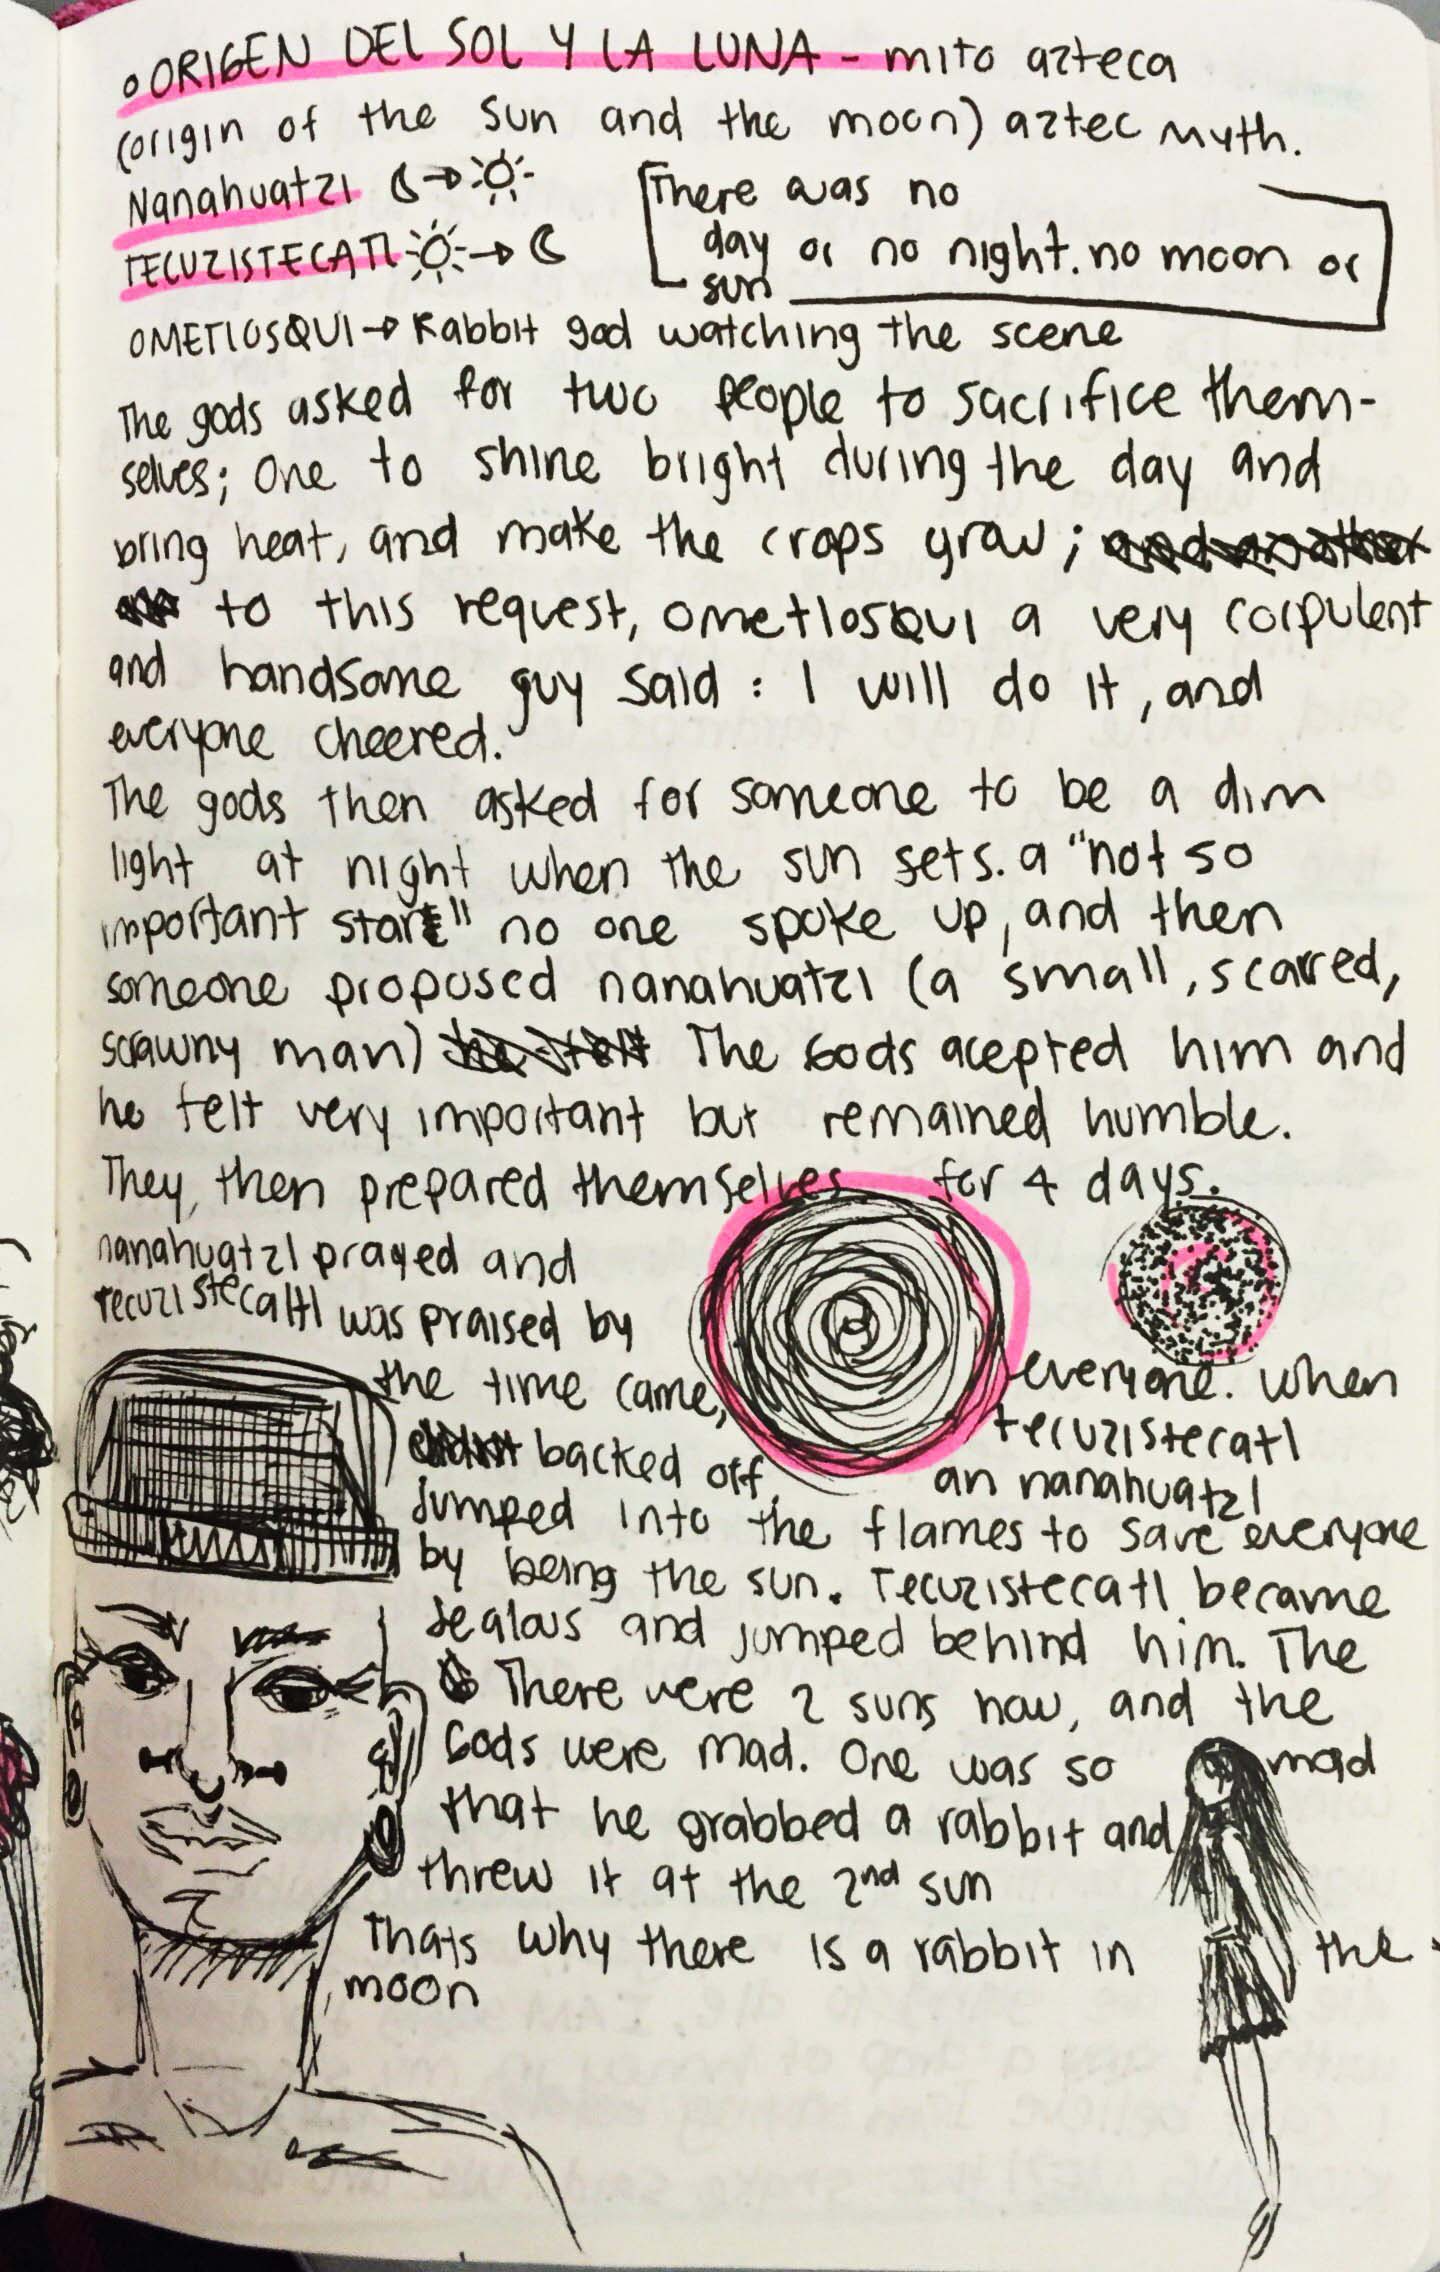 ORIGEN DEL SOL Y LA LUNA - mito azteca
(origin of the sun and the moon) aztec myth.
Nanahuatzi
TECUZISTECATL
There was no
day or no night. no moon or
sun
OMETLOSQUI → Rabbit god watching the scene
The gods asked for two people to sacrifice them-
selves; one to shine bright during the day and
bring heat, and make the crops grow;
to this request, ometlosqui a very corpulent
and handsome guy said: I will do it, and
everyone cheered.
The gods then asked for someone to be a dim
light at night when the sun sets. a "not so
important star" no one spoke up, and then
someone proposed nanahuatzi (a small, scarred,
scrawny man) The Gods acepted him and
he felt very important but remained humble.
They, then prepared themselves for 4 days.
nanahuatzi prayed and
tecuzistecatl was praised by
everyone. when
the time came,
tecuzistecatl
backed off,
an nanahuatzi
jumped into the flames to save everyone
by being the sun. Tecuzistecatl became
jealous and jumped behind him. The
There were 2 suns now, and the
Gods were mad. One was so mad
that he grabbed a rabbit and
threw it at the 2nd sun
Thats why there is a rabbit in the
moon